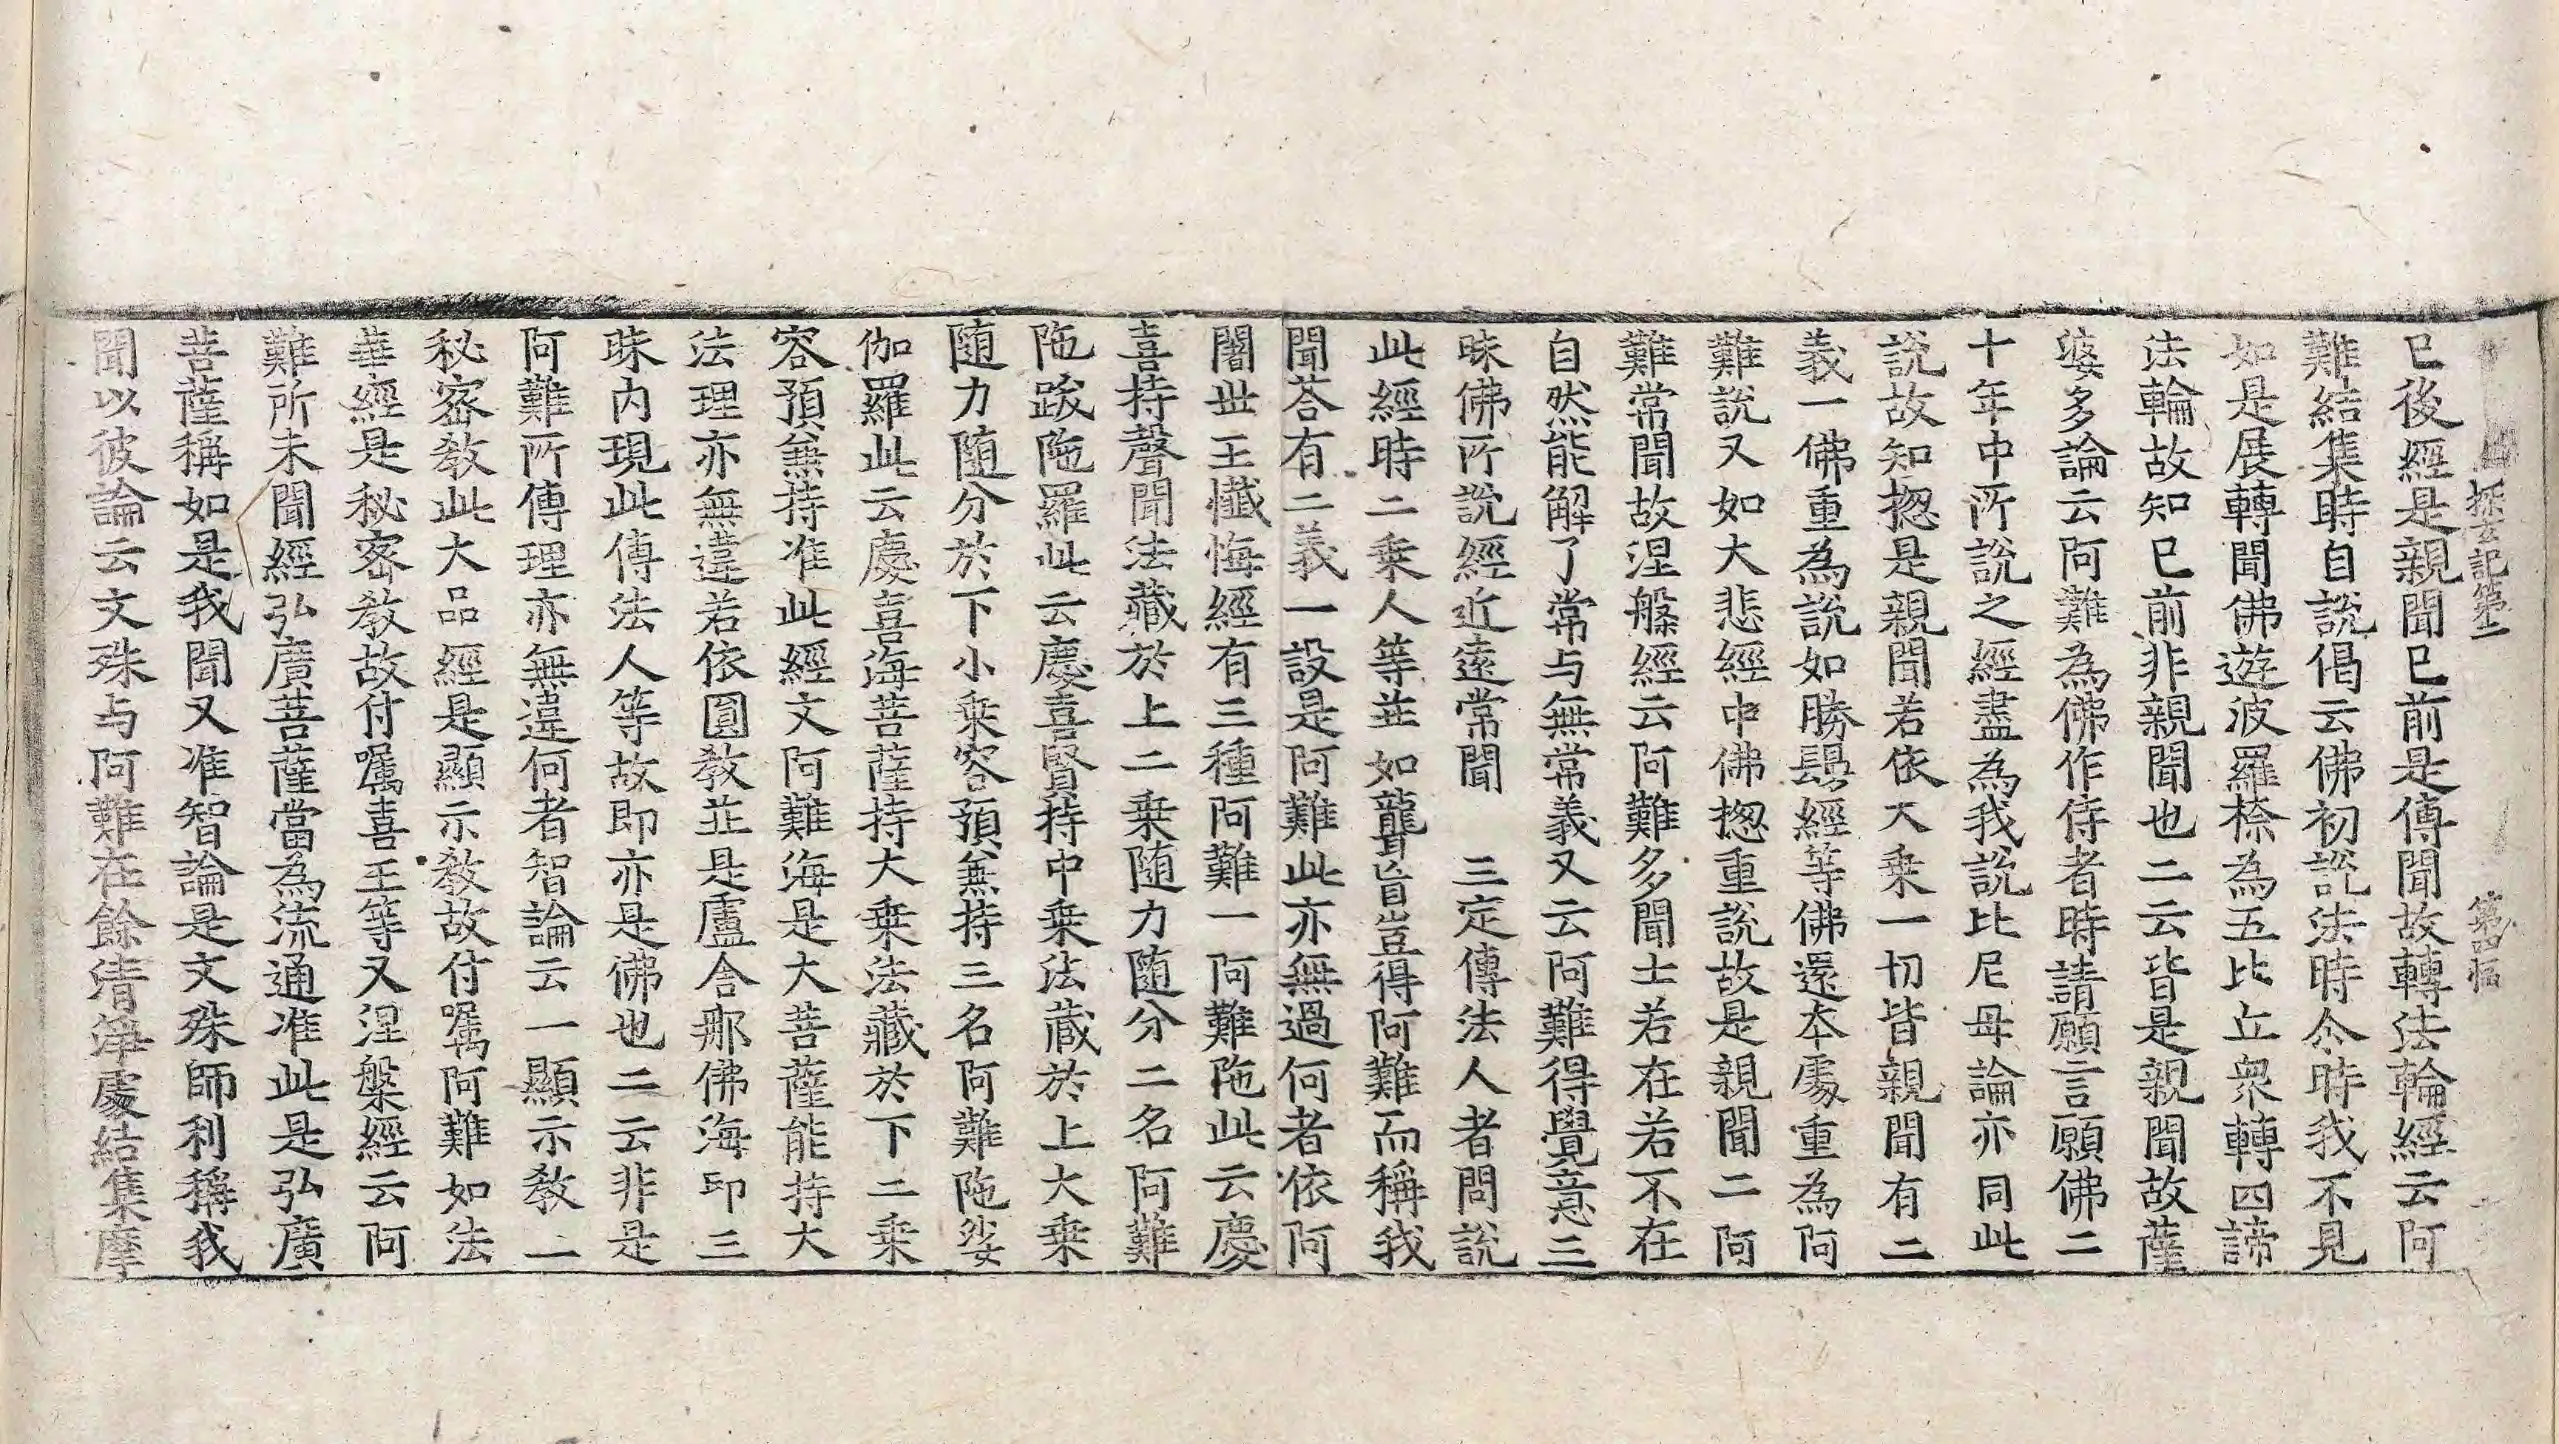 探玄記第二 第四幅
已後經是親聞已前是傳聞故轉法輪經云阿
難結集時自說偈云佛初說法時尒時我不見
如是展轉聞佛遊波羅㮈為五比丘衆轉四諦
法輪故知已前非親聞也二云皆是親聞故薩
婆多論云阿難為佛作侍者時請願言願佛二
十年中所說之經盡為我說比尼母論亦同此
說故知揔是親聞若依大乗一切皆親聞有二
義一佛重為說如勝鬘經等佛還本處重為阿
難說又如大悲經中佛揔重說故是親聞二阿
難常聞故涅槃經云阿難多聞士若在若不在
自然能解了常与無常義又云阿難得覺意三
昧佛所說經近遠常聞 三定傳法人者問說
此經時二乗人等並如聾盲豈得阿難而稱我
聞荅有二義一設是阿難此亦無過何者依阿
闍世王懺悔經有三種阿難一阿難陁此云慶
喜持聲聞法藏於上二乗随力随分二名阿難
陁跋陁羅此云慶喜賢持中乗法蔵於上大乗
随力随分於下小乗容預兼持三名阿難陁娑
伽羅此云慶喜海菩薩持大乗法藏於下二乗
容預兼持准此經文阿難海是大菩薩能持大
法理亦無違若依圓教並是盧舍那佛海印三
昧内現此傳法人等故即亦是佛也二云非是
阿難所傳理亦無違何者智論云一顯示教一
秘密教此大品經是顯示教故付嘱阿難如法
華經是秘密教故付嘱喜王等又涅槃經云阿
難所未聞經弘廣菩薩當為流通准此是弘廣
菩薩稱如是我聞又准智論是文殊師利稱我
聞以彼論云文殊与阿難在餘清淨處結集摩